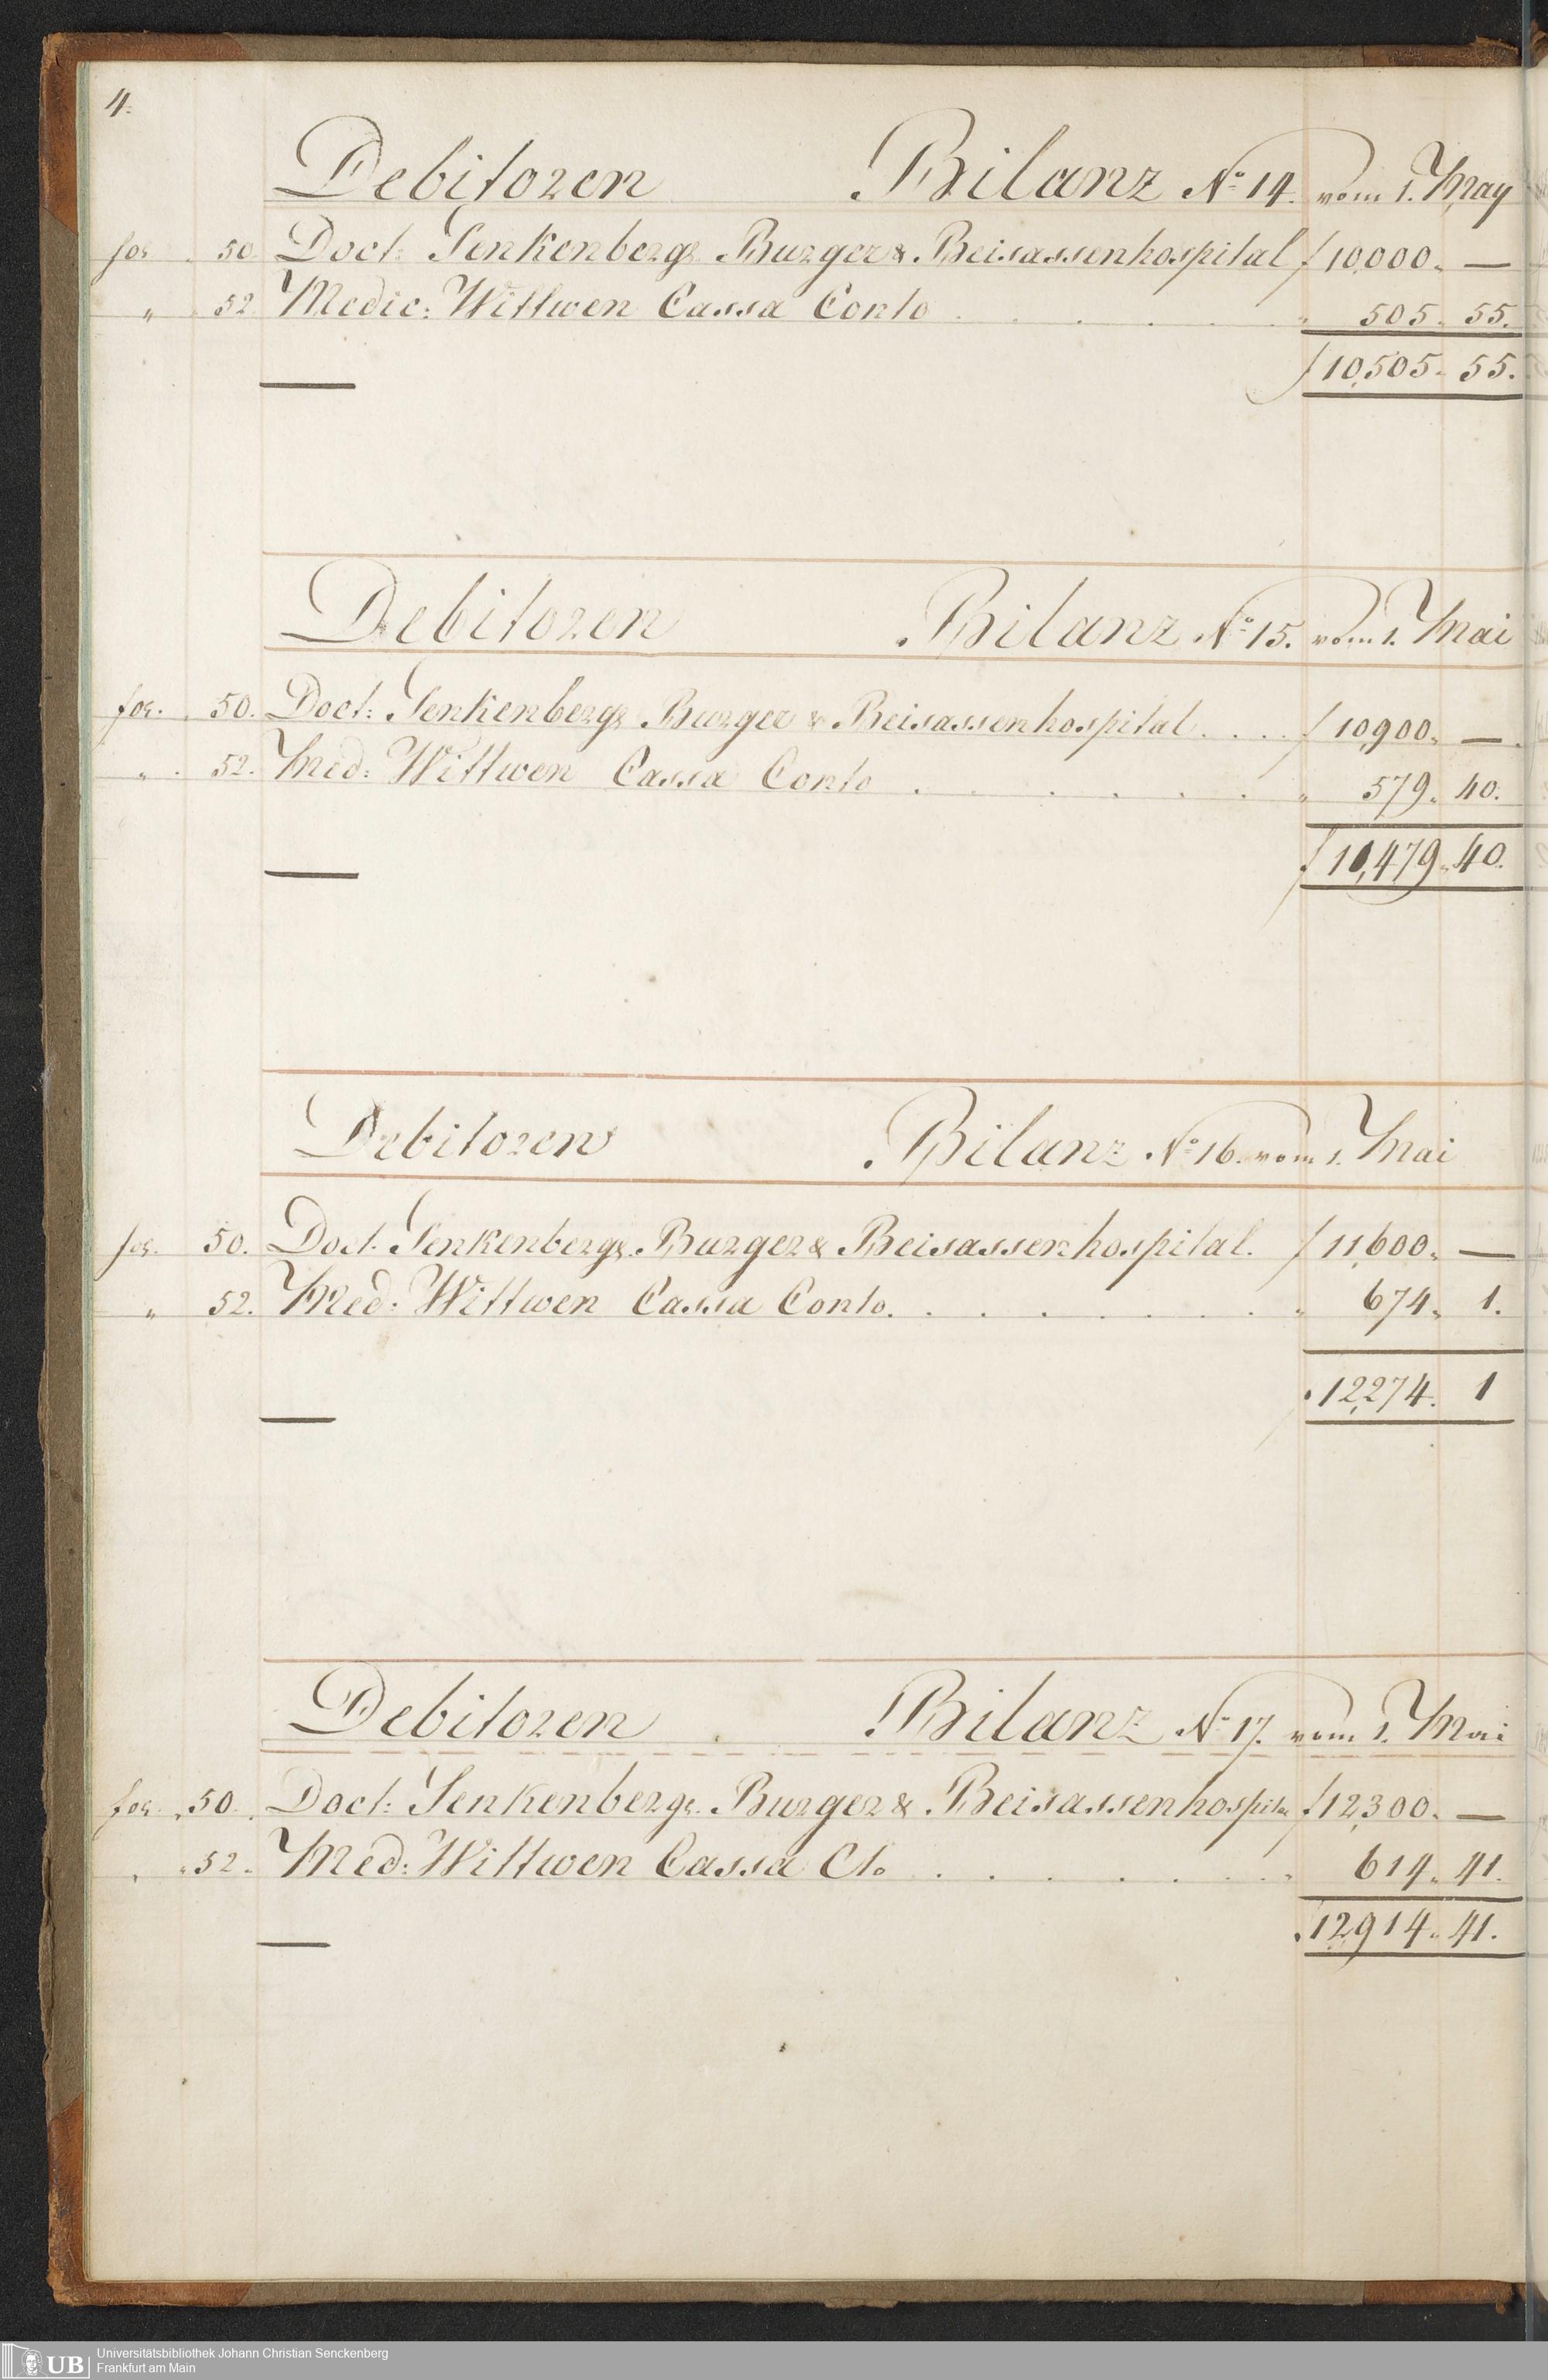 4.
Debitoren Bilanz No 14. vom 1. May
fos 50. Doct: Senkenbergs Burger & Beisassenhospital f 10,000. —
" 52. Medic: Wittwen Cassa Conto . . . . . . " 505. 55.
f 10,505. 55.
Debitoren Bilanz No 15. vom 1. Mai
fos. 50. Doct: Senkenbergs Burger & Beisassenhospital . . . f 10,900. —.
" 52. Med: Wittwen Cassa Conto . . . . . . " 579. 40.
f 11,479. 40.
Debitoren Bilanz No 16. vom 1. Mai
fos. 50. Doct. Senkenbergs Burger & Beisassenhospital. f 11,600. —
" 52. Med: Wittwen Cassa Conto. . . . . . . " 674. 1.
12,274. 1
Debitoren Bilanz No 17. vom 1. Mai
fos. 50. Doct: Senkenbergs Burger & Beisassenhospital f 12,300. —
" 52. Med: Wittwen Cassa Cto . . . . . . " 614. 41.
12,914. 41.
UB
Universitätsbibliothek Johann Christian Senckenberg
Frankfurt am Main